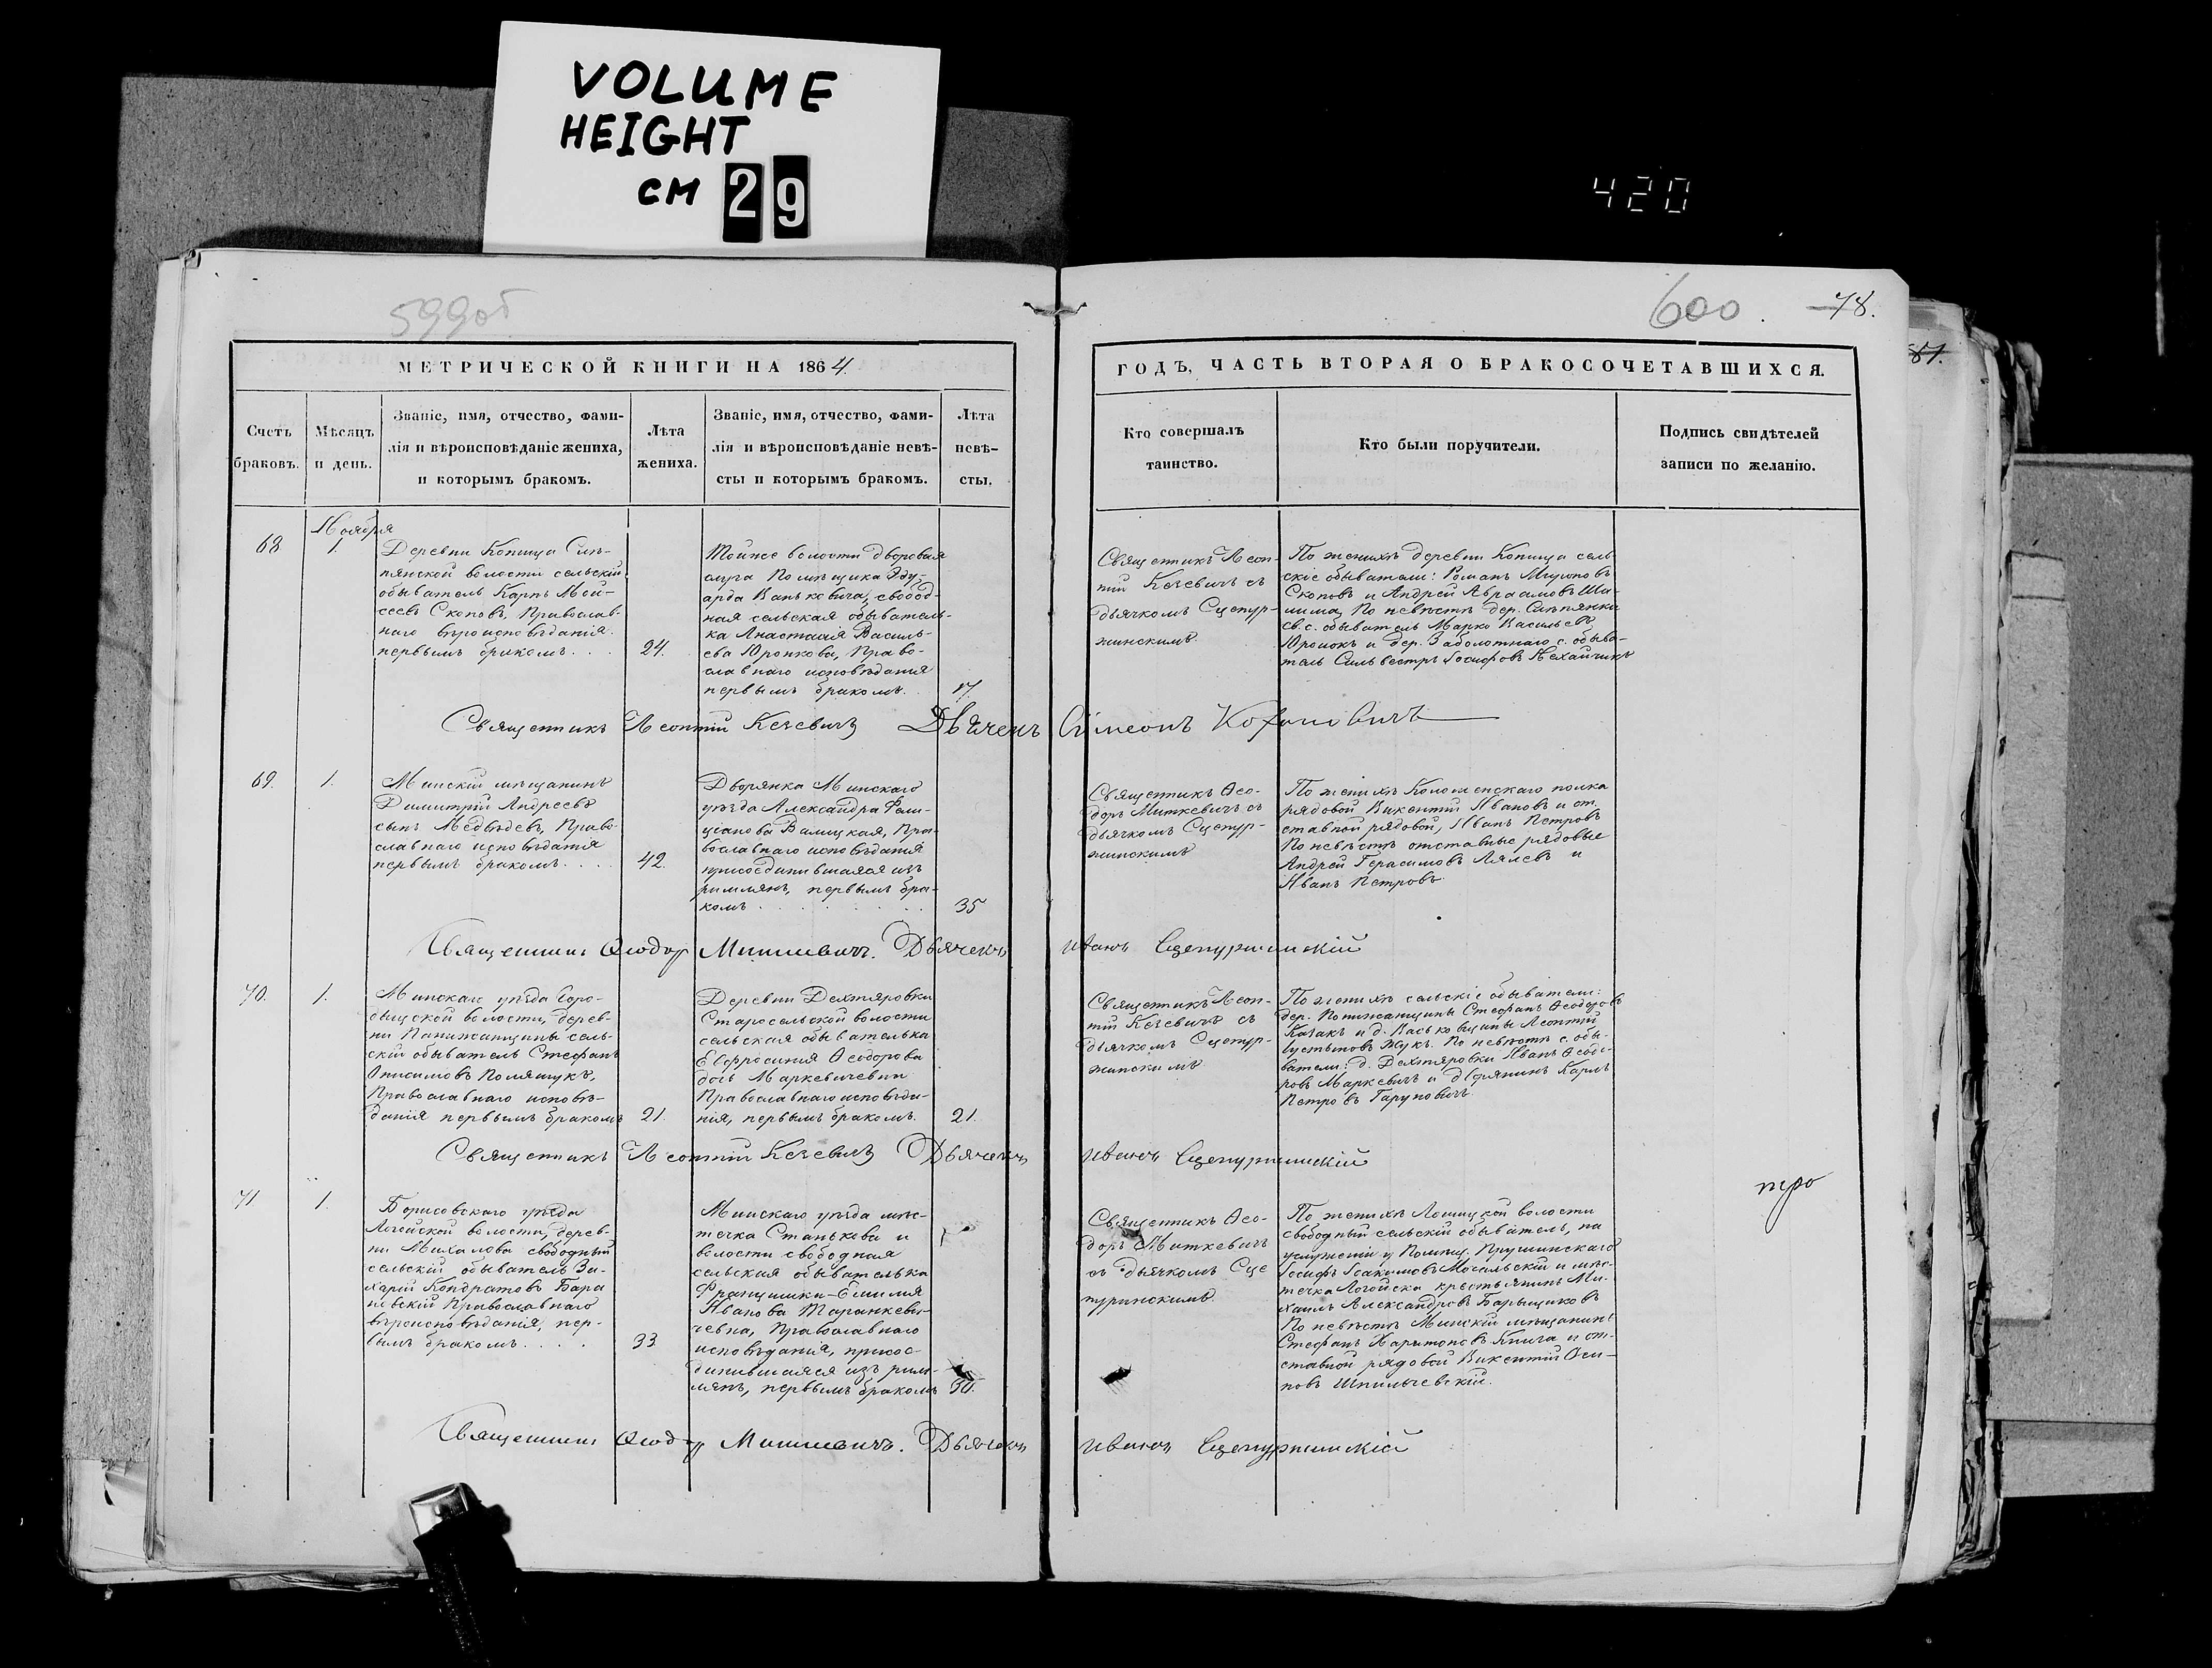 VOLUME
HEIGHT
CM 29
420
599об
600.
78.
81.
МЕТРИЧЕСКОЙ КНИГИ НА 1864
ГОДЪ, ЧАСТЬ ВТОРАЯ О БРАКОСОЧЕТАВШИХСЯ.
Счетъ
браковъ.
Мѣсяцъ
и день.
Званіе, имя, отчество, фами-
лія и вѣроисповѣданіе жениха,
и которымъ бракомъ.
Лѣта
жениха.
Званіе, имя, отчество, фами-
лія и вѣроисповѣданіе невѣ-
сты и которымъ бракомъ.
Лѣта
невѣ-
сты.
Кто совершалъ
таинство.
Кто были поручители.
Подпись свидѣтелей
записи по желанію.
68.
Ноября
1.
Деревни Копища Слѣ-
пянской волости сельскій
обыватель Карпъ Мои-
сеевъ Скоповъ, Православ-
наго вѣроисповѣданія
первымъ бракомъ. . .
24.
Тойже волости дворовая
помѣщика Эду-
арда Ваньковича, свобод-
ная сельская обыватель-
ка Анастасія Василь-
ева Юронкова, Право-
славнаго исповѣданія
первымъ бракомъ.
17.
Священникъ Леон-
тій Кечевичъ съ
дьячкомъ Сцепур-
жинскимъ.
По женихѣ деревни Копища сель-
скіе обыватели: Романъ Мироновъ
Скоповъ и Андрей Авраамовъ Ша-
По невѣстѣ дер. Слѣпянка
св. с. обыватель Марко Васильевъ
Юронокъ и дер. Заболотнаго с. обыва-
тель Сильвестръ Іосифовъ
Священникъ Леонтій Кечевичъ Дьячекъ Симеонъ
69.
1.
Минскій мѣщанинъ
Димитрій Андреевъ
сынъ Медвѣдевъ, Право-
славнаго исповѣданія
первымъ бракомъ. . . .
42.
Дворянка Минскаго
уѣзда Александра Фели-
ціанова Валицкая, Пра-
вославнаго исповѣданія
присоединившаяся изъ
римлянъ, первымъ бра-
комъ . . . . . .
35
Священникъ Ѳео-
доръ Миткевичъ съ
дьячкомъ Сцепур-
жинскимъ
По женихѣ Коломенскаго полка
рядовой Викентій Ивановъ и от-
ставной рядовой, Иванъ Петровъ
По невѣстѣ отставные рядовые
Андрей Герасимовъ Лялевъ и
Иванъ Петровъ
Священникъ Ѳеодоръ Миткевичъ. Дьячекъ Иванъ Сцепуржинскій
70.
1.
Минскаго уѣзда Горо-
дищской волости, дерев-
ни Панижанщины сель-
скій обыватель Стефанъ
Онисимовъ Полящукъ,
Православнаго исповѣ-
данія первымъ бракомъ
21.
Деревни Дехтяровки
Старосельской волости
сельская обывателька
Евфросинія Ѳеодорова
дочь Маркевичевни
Православнаго исповѣда-
нія, первымъ бракомъ.
21.
Священникъ Леон-
тій Кечевичъ съ
дьячкомъ Сцепур-
жинскимъ
По женихѣ сельскіе обыватели:
дер. Понижанщины Стефанъ Ѳеодоровъ
Казакъ и д. Васьковщины Леонтій
Іустиновъ Жукъ. По невѣстѣ с. обы-
ватели: д. Дехтяровки Иванъ Ѳеодо-
ровъ Маркевичъ и дворянинъ Карлъ
Петровъ Гаруновичъ
Священникъ Леонтій Кечевичъ Дьячекъ Иванъ Сцепуржинскій
71.
1.
Борисовскаго уѣзда
Логойской волости, дерев-
ни Михалова свободный
сельскій обыватель За-
харій Кондратовъ Бара
новскій Православнаго
вѣроисповѣданія, пер-
вымъ бракомъ. . . .
33
Минскаго уѣзда мѣс-
течка Станькова и
волости свободная
сельская обывателька
Францишка-Емилія
Иванова Таранкеви-
чевна, Православнаго
исповѣданія, присое-
динившаяся изъ рим-
лянъ, первымъ бракомъ
30.
Священникъ Ѳео-
доръ Миткевичъ
съ дьячкомъ Сце
пуржинскимъ.
По женихѣ Лошицкой волости
свободный сельскій обыватель, на
услуженіи у Помѣщ. Прушинскаго
Іосифъ Іоакимовъ Могильскій и мѣс-
течка Логойска крестьянинъ Ми-
хаилъ Александровъ Барыщиковъ
По невѣстѣ Минскій мѣщанинъ
Стефанъ Харитоновъ Книга и от-
ставной рядовой Викентій Оси-
повъ Шпилычевскій.
Священникъ Ѳеодоръ Миткевичъ. Дьячекъ Иванъ Сцепуржинскій